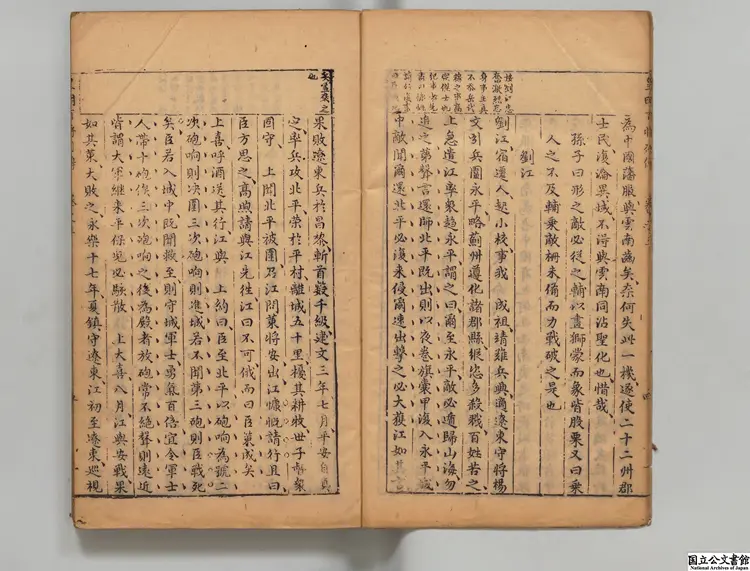 為中國藩服與雲南埒矣奈何失此一機遂使二十二州郡
士民復淪異域不得與雲南同沾聖化也惜哉
孫子曰形之敵必從之輔以畫獅蒙而象皆股栗又曰乘
人之不及輔乘敵柵未備而力戰破之是也
劉江
劉江宿遷人起小校事我 成祖靖難兵興適遼東守將楊
文引兵圍永平略薊州遵化諸郡縣恨恣多殺戮百姓苦之
上急遣江率衆趨永平謂之曰爾至永平敵必遁歸山海勿
追之第聲言還師北平既出則以夜卷旗囊甲復入永平城
中敵聞爾還北平必復來侵爾速出擊之必大獲江如其言
矣蓋襲之
也
果敗遼東兵於昌黎斬首數千級建文三年七月平安自真
定率兵攻北平營於平村離城五十里擾其耕牧世子督衆
固守 上聞北平被圍乃江問策將安出江慷慨請行且曰
臣方思之高煦請與江先往江曰不可俄而曰臣策成矣
上喜呼酒送其行江與 上約曰臣至北平以砲響為號二
次砲響則決圍三次砲響則進城若不聞第三砲則臣戰死
矣臣若入城中既聞救至則守城軍士勇氣百倍宜令軍士
人帶十砲俟三次砲響之後為殿者放砲常不絕聲則遠近
皆謂大軍繼來平保兒必駭散 上大喜八月江與安戰果
如其策大敗之永樂十七年夏鎮守遼東江初至遼東巡視
国立公文書館
National Archives of Japan